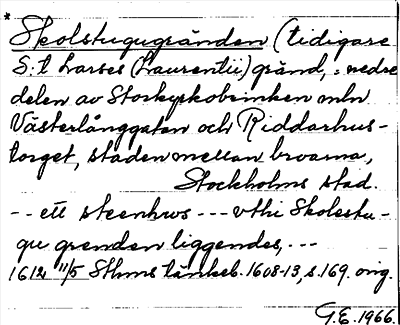 * Skolstugugränden (tidigare
S:t Larses (Laurentii) gränd, : nedre
delen av Storkyrkobrinken mln
Västerlånggatan och Riddarhus-
torget, staden mellan broarna,
Stockholms stad.
-- ett steenhws --- vthi Skolestu-
gu grenden liggendes, ---
1612 11/5 Sthms tänkeb. 1608-13, s. 169. orig.
G.E. 1966.